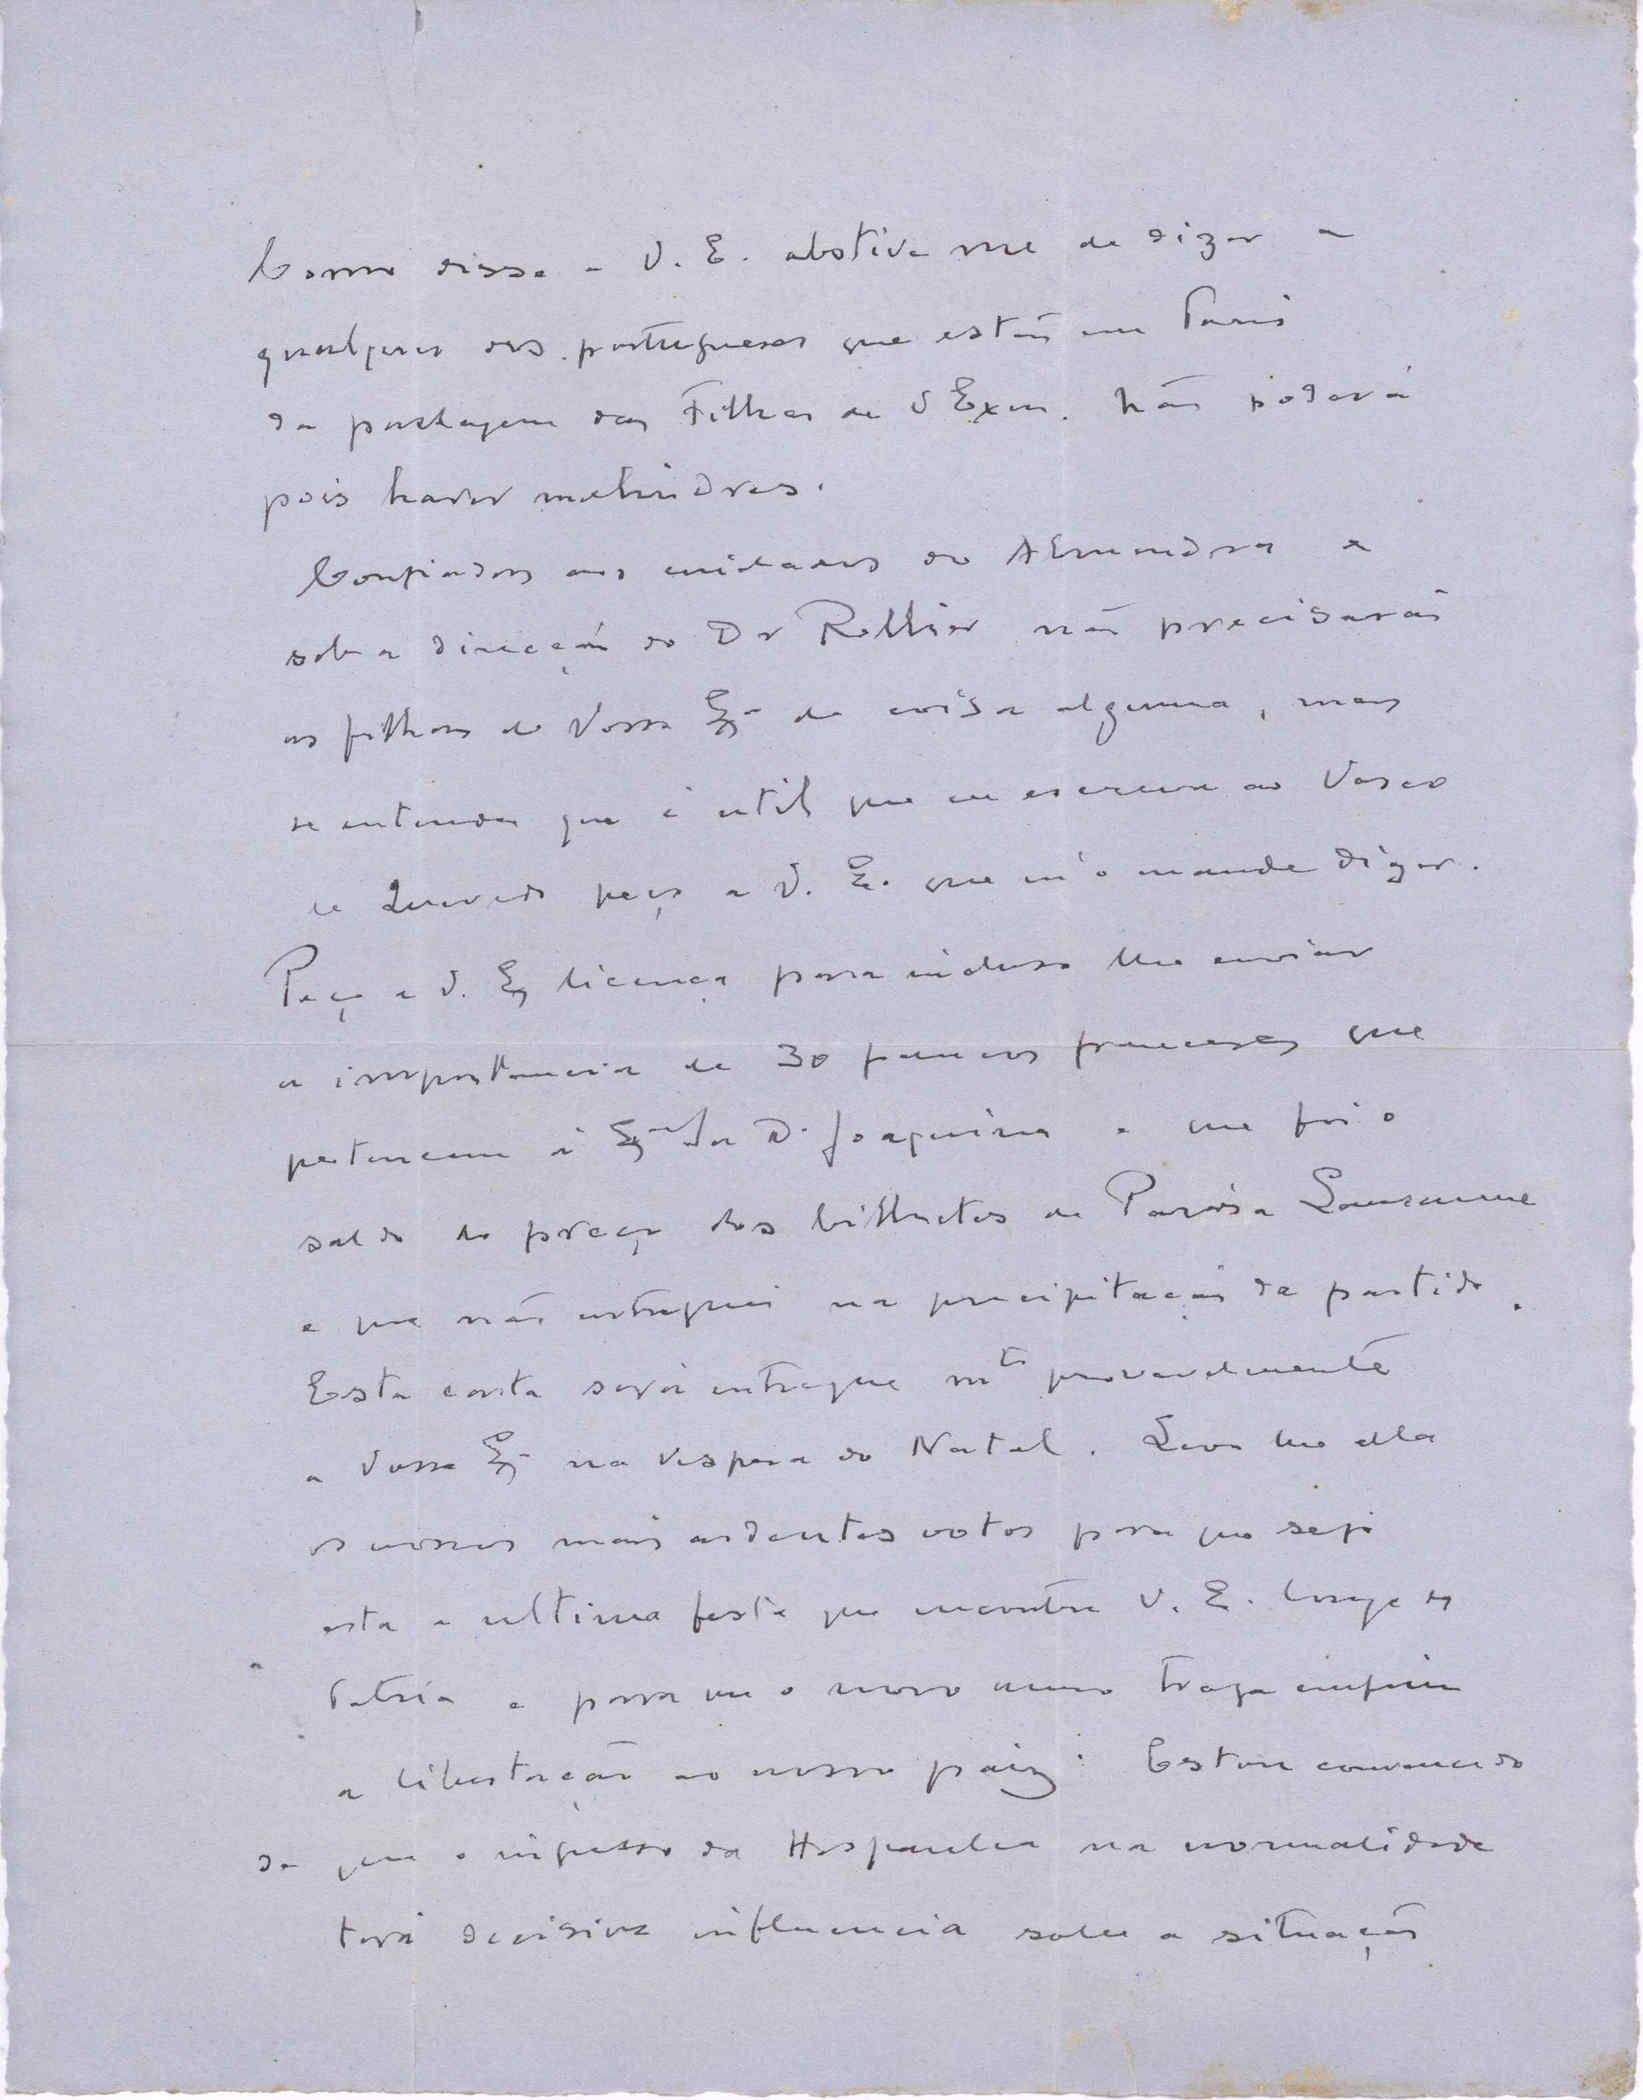 Como disse a V. E. abstive me de dizer a
qualquer dos portugueses que estão em Paris
da passagem das Filhas de V Exm. Não poderá
pois haver melindres.
Confiados aos cuidados do e
sob a direcção do Dr Rollier não precisarão
os filhos de Vossa Exa de coisa alguma, mas
se entender que é util que eu escreva ao Vasco
de Quevedo peço a V. E. que m'o mande dizer.
Peço a V. Ex licença para incluso lhe enviar
a importancia de 30 francos franceses que
pertencem á Exma Sra D. Joaquina e que foi o
saldo do preço dos bilhetes de Paris a Lausanne
e que não entreguei na precipitação da partida.
Esta carta será entregue mto provavelmente
a Vossa Exa na vespera do Natal. Leva lhe ella
os nossos mais ardentes votos para que seja
esta a ultima festa que encontre V. E. longe da
Patria e para que o novo anno traga emfim
a libertação ao nosso paiz. Estou convencido
de que o ingresso da Hespanha na normalidade
terá decisiva influencia sobre a situação